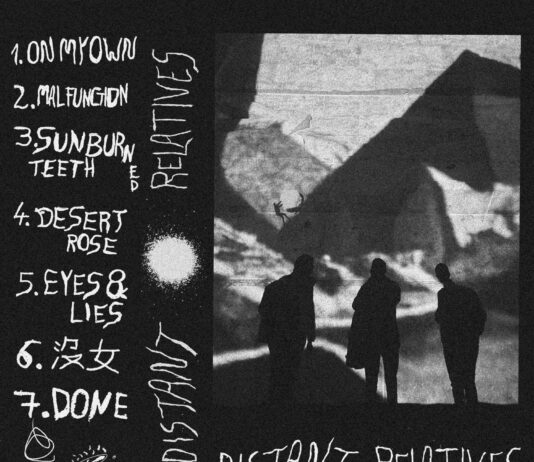 1. ON MY OWN
2. MALFUNCTION
3. SUNBURNED
TEETH
4. DESERT
ROSE
5. EYES &
LIES
6. 没女
7. DONE
DISTANT RELATIVES
DISTANT RELATIVES